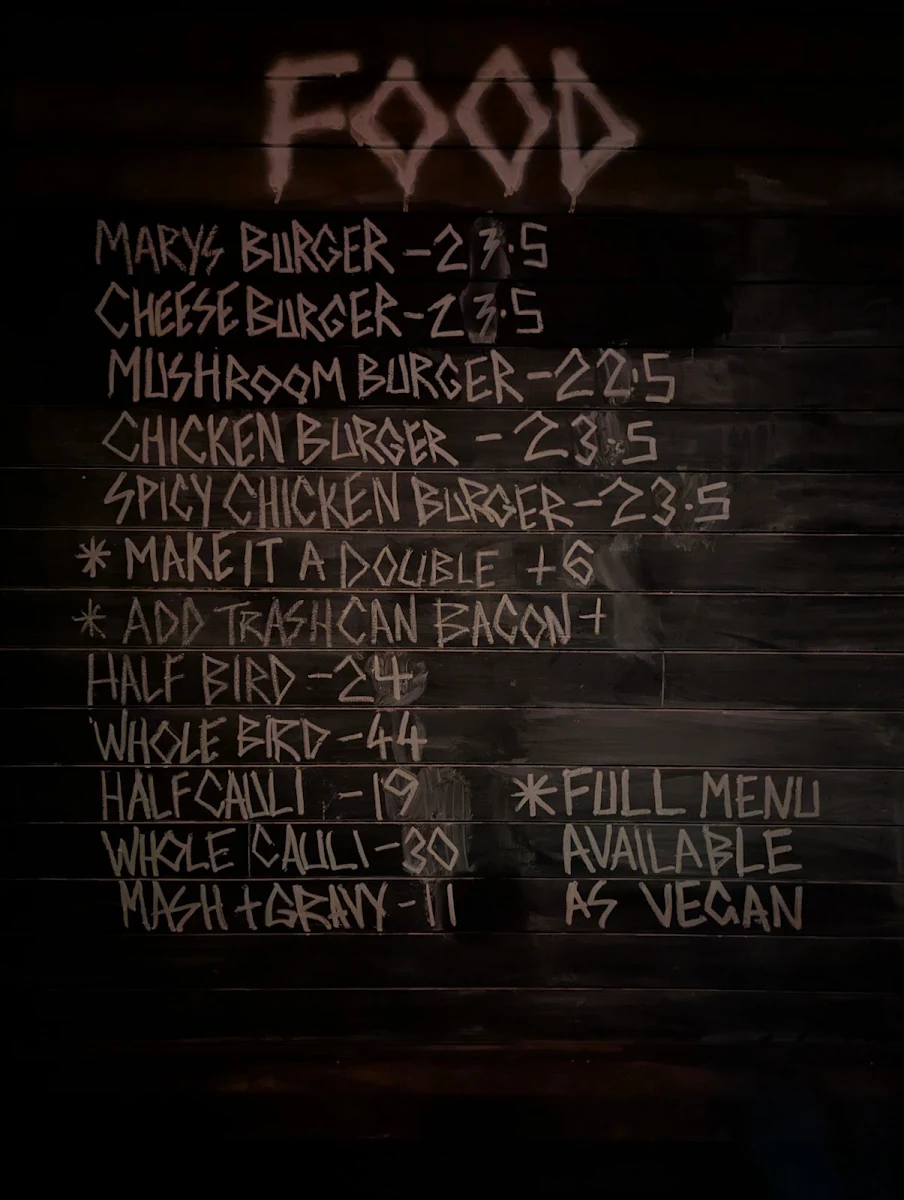 FOOD
MARYS BURGER - 23.5
CHEESEBURGER - 23.5
MUSHROOM BURGER - 22.5
CHICKEN BURGER - 23.5
SPICY CHICKEN BURGER - 23.5
* MAKE IT A DOUBLE +6
* ADD TRASHCAN BACON +
HALF BIRD - 24
WHOLE BIRD - 44
HALF CAULI - 19
WHOLE CAULI - 30
MASH + GRAVY - 11
* FULL MENU
AVAILABLE
AS VEGAN